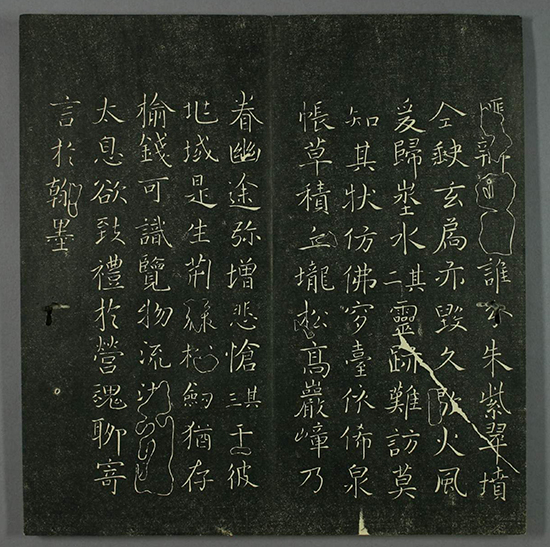 誰分朱紫翠墳
仝缺玄扃亦毀久歇火風
爰歸塋水其二靈跡難訪莫
知其狀仿佛穸臺依俙泉
帳草積丘壠松高巖嶂乃
眷幽途弥增悲愴其三于彼
兆域是生荊棘松劒猶存
榆錢可識覽物流
太息欲致禮於營魂聊寄
言於翰墨